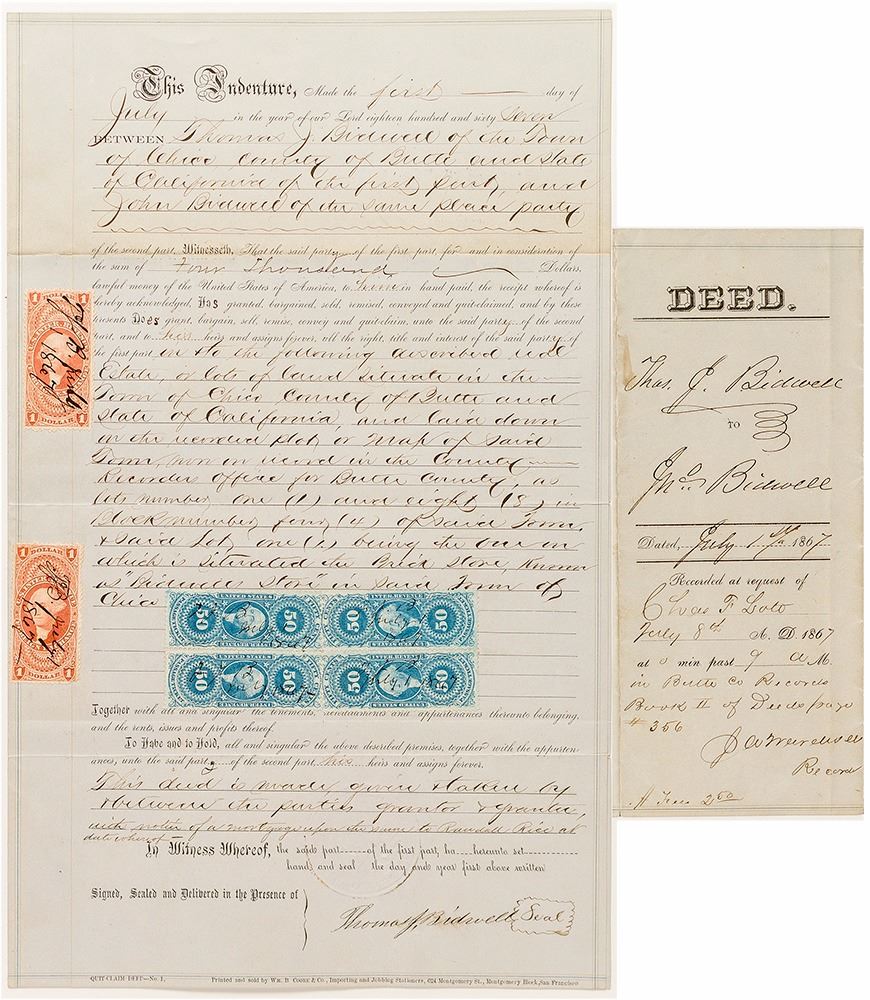 This Indenture, Made the first day of
July in the year of our Lord eighteen hundred and sixty Seven
BETWEEN Thomas J. Bidwell of the Town
of Chico County of Butte and State
of California of the first part, and
John Bidwell of the same place party
of the second part, Witnesseth, That the said party of the first part for and in consideration of
the sum of Four Thousand Dollars,
lawful money of the United States of America, to him in hand paid, the receipt whereof is
hereby acknowledged, Has granted, bargained, sold, remised, conveyed and quitclaimed, and by these
presents Does grant, bargain, sell, remise, convey and quitclaim, unto the said party of the second
part, and to his heirs and assigns forever, all the right, title and interest of the said party of
the first part in & to the following described real
Estate, or lots of land situate in the
Town of Chico County of Butte and
State of California, and laid down
on the recorded plot or map of said
Town, now on record in the County
Recorders office for Butte County, as
lots number one (1) and eight (8) in
Block number four (4) of said Town,
& said Lot one (1) being the one on
which is situated the Brick Store, Known
as "Bidwells Store" in said Town of
Chico
UNITED STATES INTER. REVENUE
50 50 50 50
50 50 50 50
July 1 1867
INTER. REVENUE UNITED STATES
1 1
1 DOLLAR 1
July 1867
1 DOLLAR 1
July 1867
1 DOLLAR 1
Together with all and singular the tenements, hereditaments and appurtenances thereunto belonging,
and the rents, issues and profits thereof.
To Have and to Hold, all and singular the above described premises, together with the appurten-
ances, unto the said party of the second part, his heirs and assigns forever.
This deed is given & taken by
& between the parties grantor & grantee,
with notice of a mortgage upon the same to Randall Rice at
date whereof
In Witness Whereof, the said part of the first part, ha hereunto set
hand and seal the day and year first above written
Signed, Sealed and Delivered in the Presence of
Thomas J. Bidwell Seal
QUIT-CLAIM DEED—No. 1. Printed and sold by WM. B COOKE & CO., Importing and Jobbing Stationers, 624 Montgomery St., Montgomery Block, San Francisco
DEED.
Thos. J. Bidwell
TO
Jno. Bidwell
Dated, July 1st 1867
Recorded at request of
Chas F Lott
July 8th A. D. 1867
at 0 min past 9 A M.
in Butte Co Records
Book II of Deeds page
# 356
Record
Fees 2.50